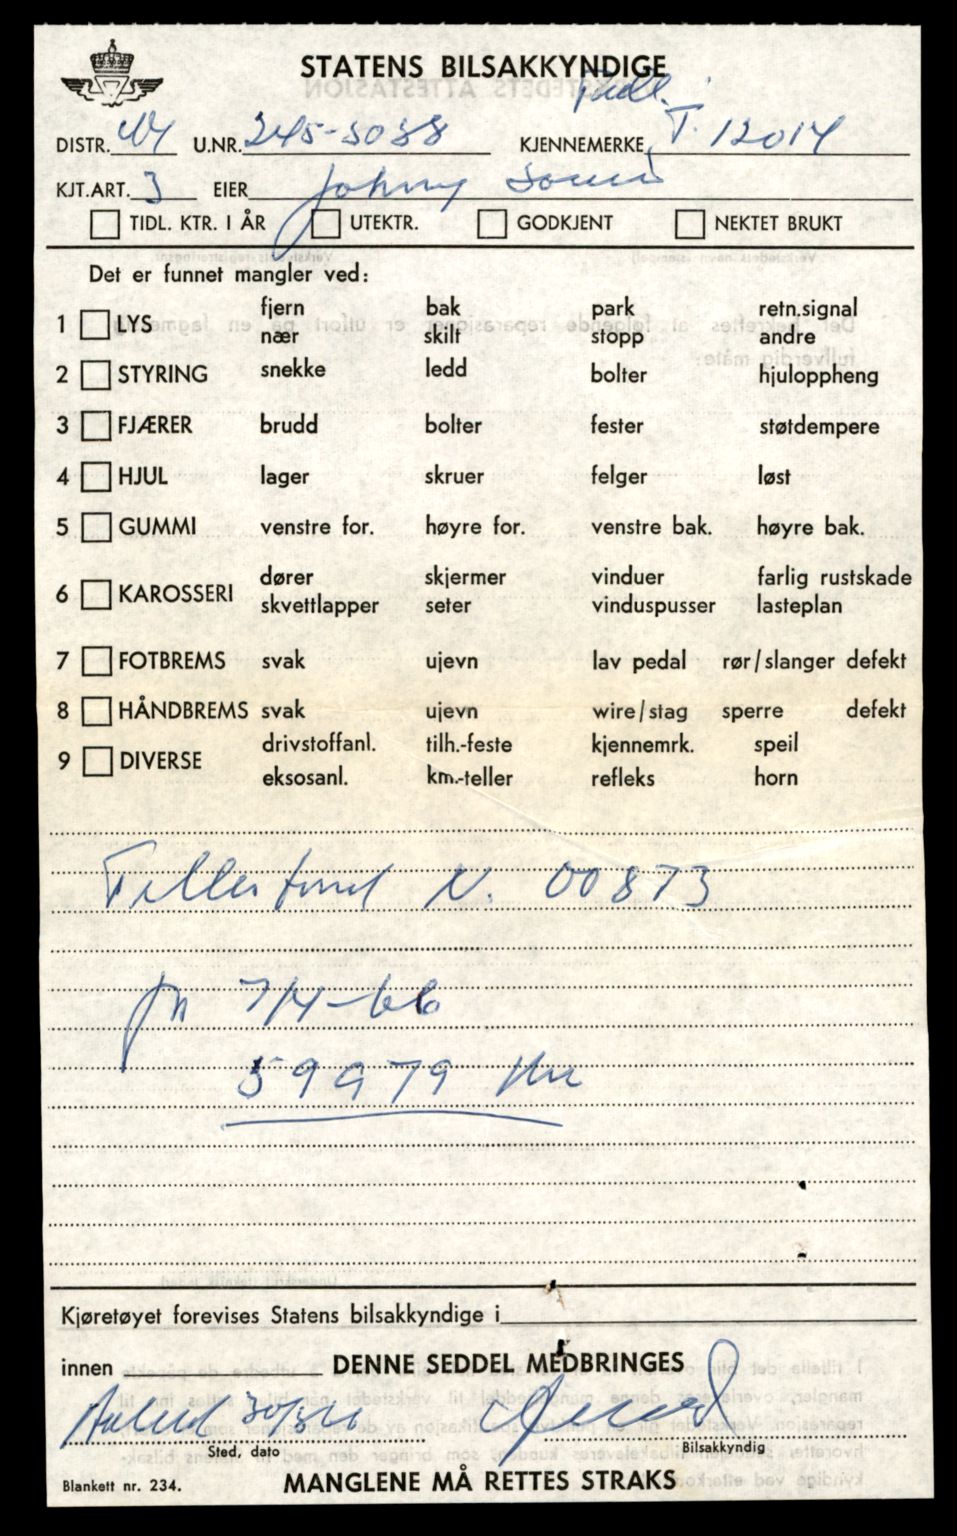 STATENS BILSAKKYNDIGE
DISTR. U.NR. 245-3038 KJENNEMERKE T. 12014
KJT.ART. 3 EIER Johnny
TIDL. KTR. I ÅR UTEKTR. GODKJENT NEKTET BRUKT
Det er funnet mangler ved:
1 LYS fjern bak park retn.signal
nær skilt stopp andre
2 STYRING snekke ledd bolter hjuloppheng
3 FJÆRER brudd bolter fester støtdempere
4 HJUL lager skruer felger løst
5 GUMMI venstre for. høyre for. venstre bak. høyre bak.
6 KAROSSERI dører skjermer vinduer farlig rustskade
skvettlapper seter vinduspusser lasteplan
7 FOTBREMS svak ujevn lav pedal rør/slanger defekt
8 HÅNDBREMS svak ujevn wire/stag sperre defekt
9 DIVERSE drivstoffanl. tilh.-feste kjennemrk. speil
eksosanl. km.-teller refleks horn
N. 00873
7/4-66
59979
Kjøretøyet forevises Statens bilsakkyndige i
innen DENNE SEDDEL MEDBRINGES
Sted, dato Bilsakkyndig
Blankett nr. 234. MANGLENE MÅ RETTES STRAKS